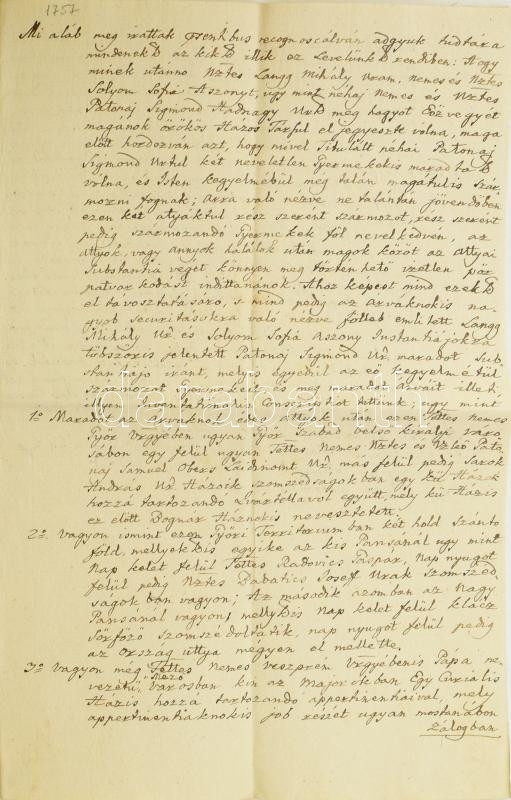 1757
Mi aláb meg irattak recognoscalván adgyuk tudtára
mindeneknek az kiknek illik ez Levelünknek rendiben: Hogy
minek utánno Nztes Langg Mihály Uram, nemes és Nztes
Solyom Sofia Aszonyt, ugy mint néhaj Nemes és Nztes
Patonaj Sigmond Hadnagy Urnak meg hagyot Eözvegyet
magának örökös Házos Társul el jegyeszte vólna, maga
előtt hordozván azt, hogy mivel titulált néhai Patonaj
Sigmond Urtul két neveletlen Gyermekekis marad
vólna, és Isten kegyelmébül még talán magátulis Szár
mozni fognak; Arra való nézve ne talántan jövendőben
ezen két atyáktul rész szerent származot, rész szerént
pedig származandó Gyermekek föl nevelkedvén, az
attyok, vagy annyok halálok után magok között az Attyai
Substantia végett könnyen meg történhető
patvarkodást indittanának. Ahoz képest mind ezeknek
el távosztatására, s mind pedig az árváknokis na
gyob securitásukra való nézve föllebb emlitett Langg
Mihály Ur és Solyom Sofia Aszony Instantiájokra
többszöris jelentett Patonaj Sigmond Ur, maradot Sub
stantiája iránt, melyis egyedül az eő kegyelmétül
Származot Gyermekeit és meg maradt árváit illeti
illyen Inventatiot és Conscriptiót tettünk, ugy mint
1o Maradot az árváknok édes attyok után ezen Tettes nemes
Győr Vrgyében ugyan Győr Szabad belső királyi váro
sában egy felül ugyan Tettes Nemes Nztes és Vzlő Pato
naj Samuel Obers Laidinont Ur, mas felül pedig Sarok
András Ur Házaik szomszédságokban egy kű Házok
hozzá tartozandó együtt, mely kű Házis
ez előtt Bognár Háznokis neveztetett.
2o Vagyon ismint ezen Győri Territoriumban két hold szántó
föld, mellyeknis egyike az kis Pánsánál ugy mint
Nap kelet felül Tettes Radovics Gáspár, Nap nyugot
felül pedig Nztes Babatics Josef Urak Szomszéd
ságokban vagyon; Az masodik azomban az Nagy
Pánsánál vagyon, mellynekis Nap kelet felül
Sörfőző Szomszédoltatik, nap nyugot felül pedig
az Ország uttya megyen el mellette.
3o Vagyon még Tettes Nemes Veszprém Vrgyébenis Pápa ne
vezetű Mező városban kin az Majorokban Egy Curiális
Házis hozzá tartozandó appertinentiáival, mely
appertinentiáknokis job részét ugyan mostanában
zálogban
darabanth